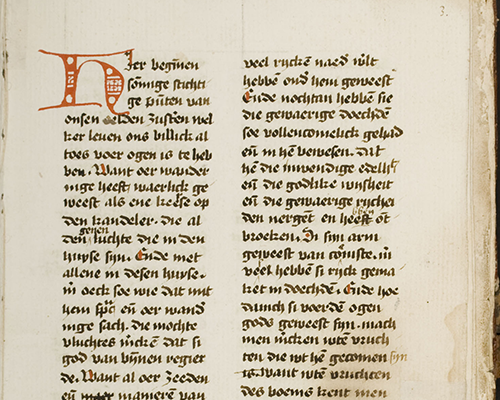 3.
Hier beginnen
sōnige stichti
ge pūten van
onsen oelden zusten wel
ker leuen ons billick al
toes voer ogen is te heb
ben. Want oer wander
inge heeft waerlick ge
weest als ene keerse op
den kandeler. die al
den genen luchte die in den
huyse syn. Ende met
allene in desen huyse.
m̄ oeck soe wie dat mit
hem sprac eñ oer wand
inge sach. die mochte
vluchtes m̄cken dat si
god van bȳnen regiet
de. Want al oer zeeden
eñ manieren van
veel rijckē naed w̄lt
hebbē ond hem geweest
Ende nochtan hebbē sie
die gewaerige doechdē
soe vollencomelick gehad
eñ in hē bewesen. dat
hē die inwendige edelh
eñ die godlike wijsheit
eñ die gewaerige rijchei
den nerget en heeft ōt
broeken. Di syn arm
geweest van cōuste. m̄
veel hebbē si rijck gema
ket in doechdē. Ende hoe
danich si voerdē ogen
gods geweest syn. mach
men m̄cken wtē vruch
ten die wt hē gecomen syn
is. want wtē vruchten
des boems kent men